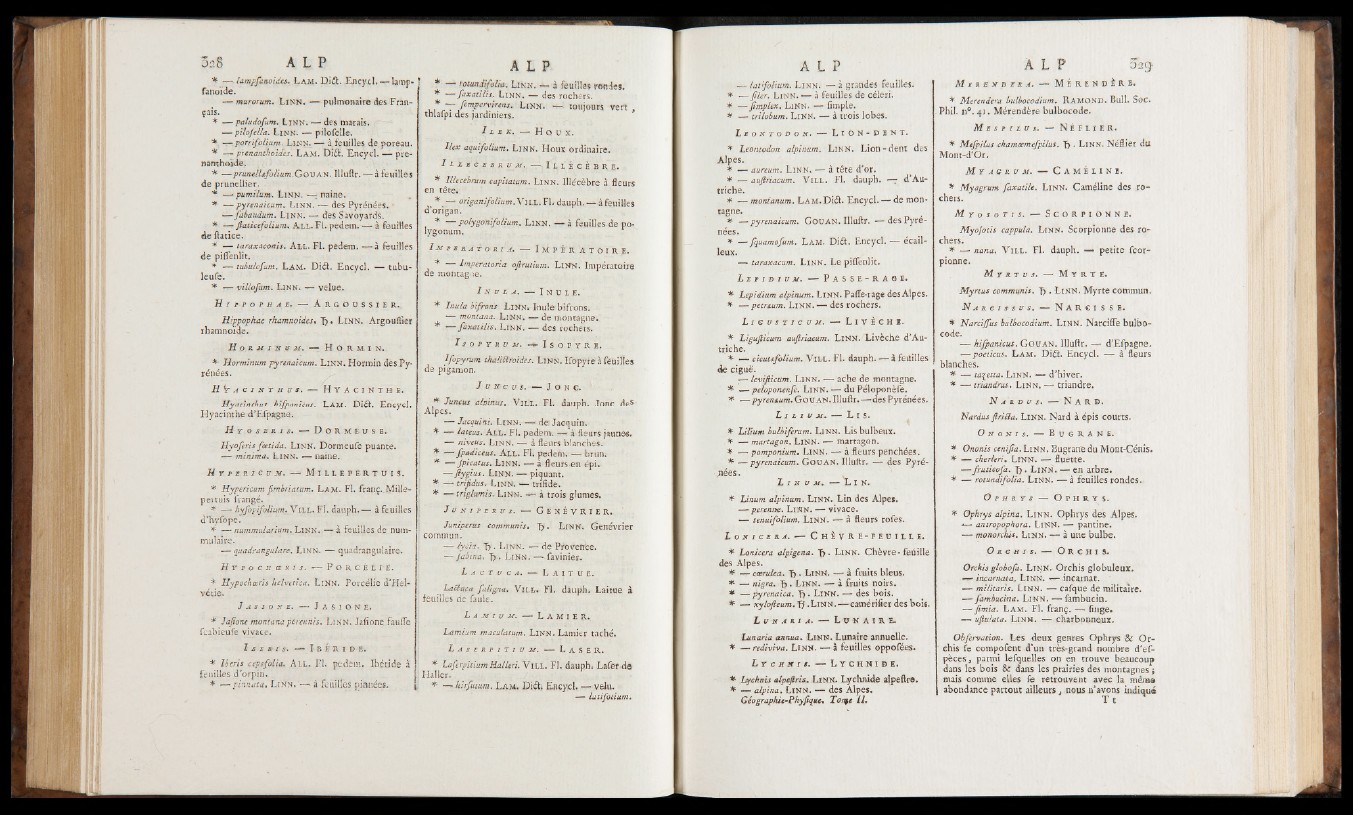 328 A L P
* — lampsanoides. LAM. Dict. Encycl. — lamp-
sanoïde.
— murorum. LINN. — pulmonaire des Fran-
çais.
* — paludosum. LINN. — des marais.
— pilosella. LINN. — piloselle.
* — porrifolium. LINN. — à feuilles de poreau.
* — prenanthoides. LAM. Dict. Encycl. — pre-
nanthoïde.
* — prunellæfolium GOUAN. Illustr. — à feuilles
de prunellier.
* — pumilum. LINN. — naine.
* — pyrenaicum. LINN. — des Pyrénées.
— sabaudum. LINN. — des Savoyards.
* — staticefolium. ALL. Fl. pedem. — à feuilles
de statice.
* — taraxaconis. ALL. Fl. pedem. — à feuilles
de pissenlit.
* — tubulosum. LAM. Dict. Encycl. — tubu-
leuse.
* — villosum. LINN. — velue.
HIPPOPHAE. — ARGOUSSIER.
Hippophae rhamnoides. ♄. LINN. Argoussier
rhamnoïde.
HORMINUM. — HORMIN.
* Horminum pyrenaicum. LINN. Hormin des Py-
rénées.
HYACINTHUS. — HYACINTHE.
Hyacinthus hispanicus. LAM. Dict. Encycl.
Hyacinthe d'Espagne.
HYOSERIS. — DORMEUSE.
Hyoseris fœtida. LINN. Dormeuse puante.
— minima. LINN. — naine.
HYPERICUM. — MILLEPERTUIS.
* Hypericum fimbriatum. LAM. Fl. franç. Mille-
pertuis frangé.
* — hysopifolium. VILL. Fl. dauph. — à feuilles
d'hysope.
* — nummularium. LINN. — à feuilles de num-
mulaire.
— quadrangulare. LINN. — quadrangulaire.
HYPOCHŒRIS. — PORCELIE.
* Hypochœris helvetica. LINN. Porcélie d'Hel-
vétie.
JASIONE. — JASIONE.
* Jasione montana perennis. LINN. Jasione fausse
scabieuse vivace.
IBERIS. — IBÉRIDE.
* Iberis cepefolia. ALL. Fl. pedem. Ibéride à
feuilles d'orpin.
* — pinnata. LINN. — à feuilles pinnées.
A L P
* — rotundifolia. LINN. — à feuilles rondes.
* — saxatilis. LINN. — des rochers.
* — sempervirens. LINN. — toujours vert,
thlaspi des jardiniers.
ILEX. — HOUX.
Ilex aquifolium. LINN. Houx ordinaire.
ILLECEBRUM. — ILLÉCÈBRE.
* Illecebrum capitatum. LINN. Illécèbre à fleurs
en tête.
* — origanifolium. VILL. Fl. dauph. — à feuilles
d'origan.
* — polygonifolium. LINN. — à feuilles de po-
lygonum.
IMPERATORIA. — IMPÉRATOIRE.
* — Imperatoria ostrutium. LINN. Impératoire
de montagne.
INULA. — INULE.
* Inula bifrons. LINN. Inule bifrons.
— montana. LINN. — de montagne.
* — saxatilis. LINN. — des rochers.
ISOPYRUM. — ISOPYRE.
Isopyrum thalictroides. LINN. Isopyre à feuilles
de pigamon.
JUNCUS. — JONC.
* Juncus alpinus. VILL. Fl. dauph. Jonc des
Alpes.
— Jacquini. LINN. — de Jacquin.
* — luteus. ALL. Fl. pedem. — à fleurs jaunes.
— niveus. LINN. — à fleurs blanches.
* — spadiceus. ALL. Fl. pedem. — brun.
* — spicatus. LINN. — à fleurs en épi.
— stygius. LINN. — piquant.
* — trifidus. LINN. — trifide.
* — triglumis. LINN. — à trois glumes.
JUNIPERUS. — GENÉVRIER.
Juniperus communis. ♄. LINN. Genévrier
commun.
— lycia. ♄. LINN. — de Provence.
— sabina. ♄. LINN. — savinier.
LACTUCA. — LAITUE.
Lactuca saligna. VILL. Fl. dauph. Laitue à
feuilles de saule.
LAMIUM. — LAMIER.
Lamium maculatum. LINN. Lamier taché.
LASERPITIUM. — LASER.
* Laserpitium Halleri. VILL. Fl. dauph. Laser de
Haller.
* — hirsutum. LAM. Dict. Encycl. — velu.
— latifolium.
A L P
— latifolium. LINN. — à grandes feuilles.
* — siler. LINN. — à feuilles de céleri.
* — simplex. LINN. — simple.
* — trilobum. LINN. — à trois lobes.
LEONTODON. — LION-DENT.
* Leontodon alpinum. LINN. Lion-dent des
Alpes.
* — aureum. LINN. — à tête d'or.
* — austriacum. VILL. Fl. dauph. — d'Au-
triche.
* — montanum. LAM. Dict. Encycl. — de mon-
tagne.
* — pyrenaicum. GOUAN. Illustr. — des Pyré-
nées.
* — squamosum. LAM. Dict. Encycl. — écail-
leux.
— taraxacum. LINN. Le pissenlit.
LEPIDIUM. — PASSE-RAGE.
* Lepidium alpinum. LINN. Passe-rage des Alpes.
* — petræum. LINN. — des rochers.
LIGUSTICUM. — LIVÈCHE.
* Ligusticum austriacum. LINN. Livèche d'Au-
triche.
* — cicutæfolium. VILL. Fl. dauph. — à feuilles
de ciguë.
— levisticum. LINN. — ache de montagne.
* — peloponense. LINN. — du Péloponèse.
* — pyrenæum. GOUAN. Illustr. — des Pyrénées.
LILIUM. — LIS.
* Lilium bulbiferum. LINN. Lis bulbeux.
* — martagon. LINN. — martagon.
* — pomponium. LINN. — à fleurs penchées.
* — pyrenaicum. GOUAN. Illustr. — des Pyré-
nées.
LINUM. — LIN.
* Linum alpinum. LINN. Lin des Alpes.
— perenne. LINN. — vivace.
— tenuifolium. LINN. — à fleurs roses.
LONICERA. — CHÈVRE-FEUILLE.
* Lonicera alpigena. ♄. LINN. Chèvre-feuille
des Alpes.
* — cœrulea. ♄. LINN. — à fruits bleus.
* — nigra. ♄. LINN. — à fruits noirs.
* — pyrenaica. ♄. LINN. — des bois.
* — xylosteum. ♄. LINN. — camérisier des bois.
LUNARIA. — LUNAIRE.
Lunaria annua. LINN. Lunaire annuelle.
* — rediviva. LINN. — à feuilles opposées.
LYCHNIS. — LYCHNIDE.
* Lychnis alpestris. LINN. Lychnide alpestre.
* — alpina. LINN. — des Alpes.
Géographie-Physique. Tome II.
A L P 329
MERENDERA. — MÉRENDÈRE.
* Merendera bulbocodium. RAMOND. Bull. Soc.
Phil. n°. 41. Mérendère bulbocode.
MESPILUS. — NÉFLIER.
* Mespilus chamæmespilus. ♄. LINN. Néflier du
Mont-d'Or.
MYAGRUM. — CAMÉLINE.
* Myagrum saxatile. LINN. Caméline des ro-
chers.
MYOSOTIS. — SCORPIONNE.
Myosotis cappula. LINN. Scorpionne des ro-
chers.
* — nana. VILL. Fl. dauph. — petite scor-
pionne.
MYRTUS. — MYRTE.
Myrtus communis. ♄. LINN. Myrte commun.
NARCISSUS. — NARCISSE.
* Narcissus bulbocodium. LINN. Narcisse bulbo-
code.
— hispanicus. GOUAN. Illustr. — d'Espagne.
— poeticus. LAM. Dict. Encycl. — à fleurs
blanches.
* — tazetta. LINN. — d'hiver.
* — triandrus. LINN. — triandre.
NARDUS. — NARD.
Nardus stricta. LINN. Nard à épis courts.
ONONIS. — BUGRANE.
* Ononis cenisia. LINN. Bugrane du Mont-Cénis.
* — cherleri. LINN. — fluette.
* — fruticosa. ♄. LINN. — en arbre.
* — rotundifolia. LINN. — à feuilles rondes.
OPHRYS — OPHRYS.
* Ophrys alpina. LINN. Ophrys des Alpes.
— antropophora. LINN. — pantine.
— monorchis. LINN. — à une bulbe.
ORCHIS. — ORCHIS.
Orchis globosa. LINN. Orchis globuleux.
— incarnata. LINN. — incarnat.
— militaris. LINN. — casque de militaire.
— sambucina. LINN. — sambucin.
— simia. LAM. Fl. franç. — singe.
— ustulata. LINN. — charbonneux.
Observation. Les deux genres Ophrys & Or-
chis se composent d'un très-grand nombre d'es-
pèces, parmi lesquelles on en trouve beaucoup
dans les bois & dans les prairies des montagnes;
mais comme elles se retrouvent avec la même
abondance partout ailleurs, nous n'avons indiqué
T t